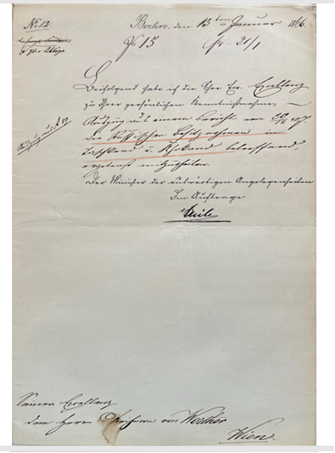 No 12.
Berlin, den 13ten Januar 1866
No 15
pr. 21/1
Beifolgend habe ich die Ehre Ew. Excellenz
zu Ihrer persönlichen Kenntnißnahme,
Auszug aus einem Bericht
die Russischen in
Taschkend u. Khokand betreffend,
ergebenst mitzutheilen.
Der Minister der auswärtigen Angelegenheiten
Im Auftrage
Seiner Excellenz
dem Herrn Freiherrn von Werther
Wien.